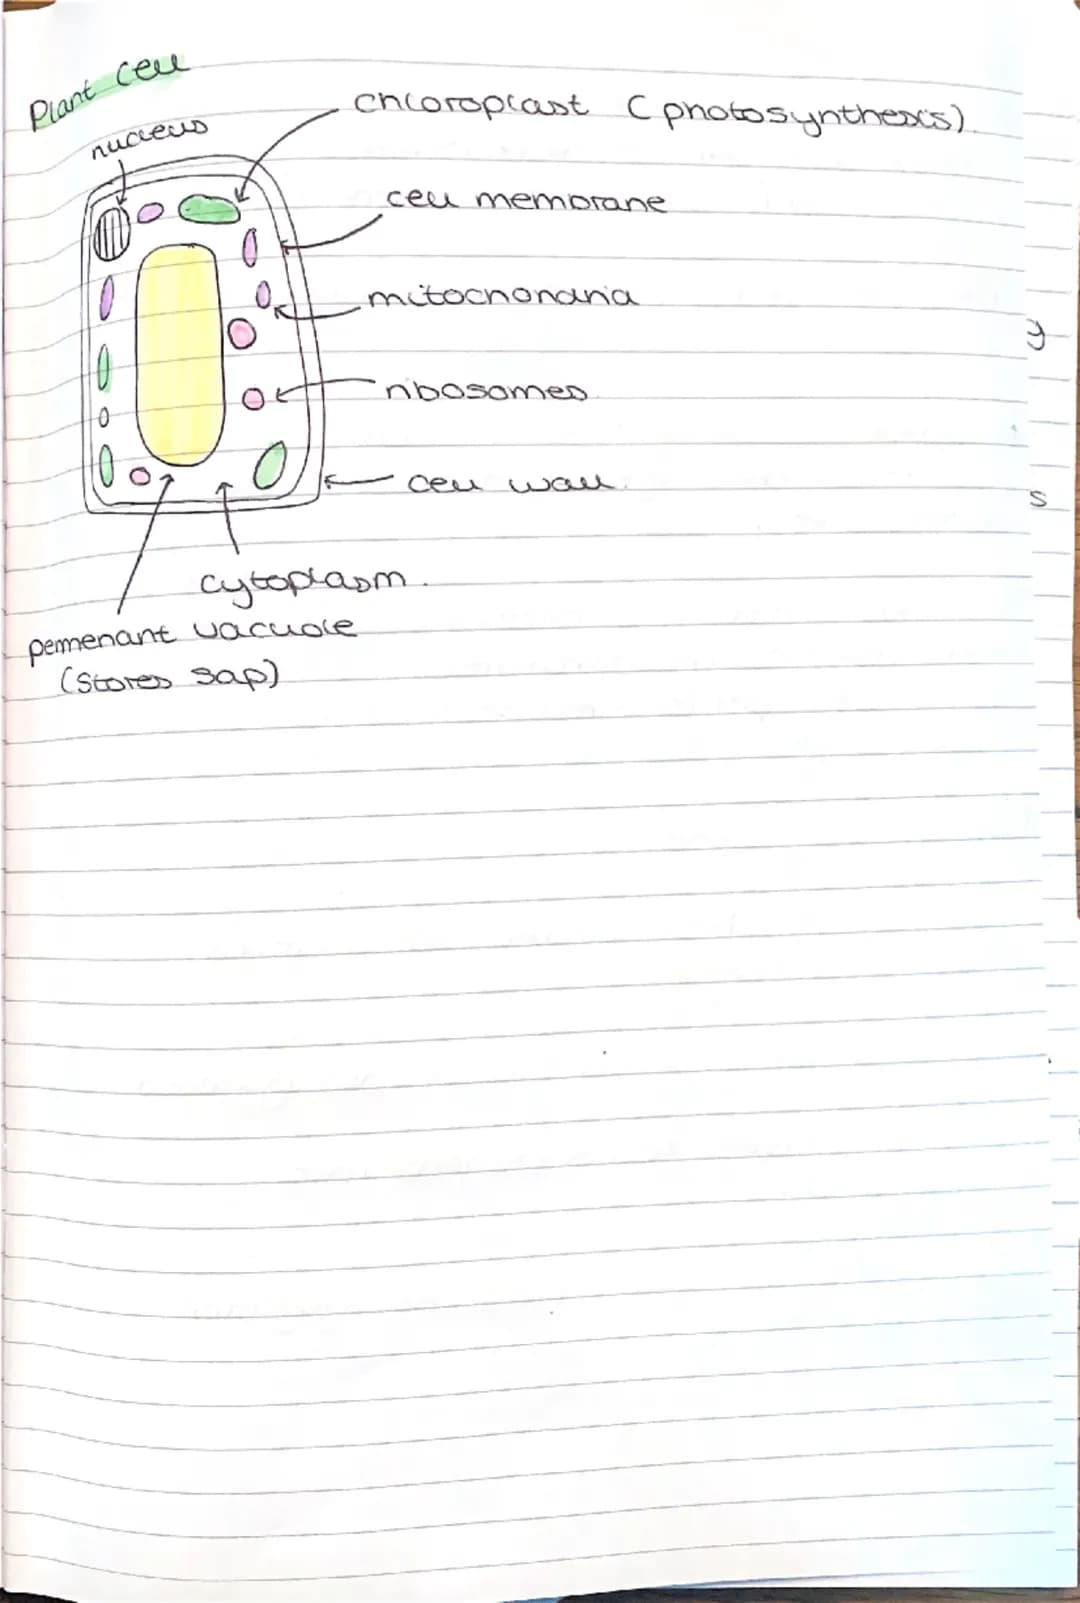 Plant cell
nucleus
chloroplast (photosynthesis)
cell membrane
mitochondria
ribosomes
cell wall
cytoplasm.
pemenant vacuole
(stores sap)
y
s